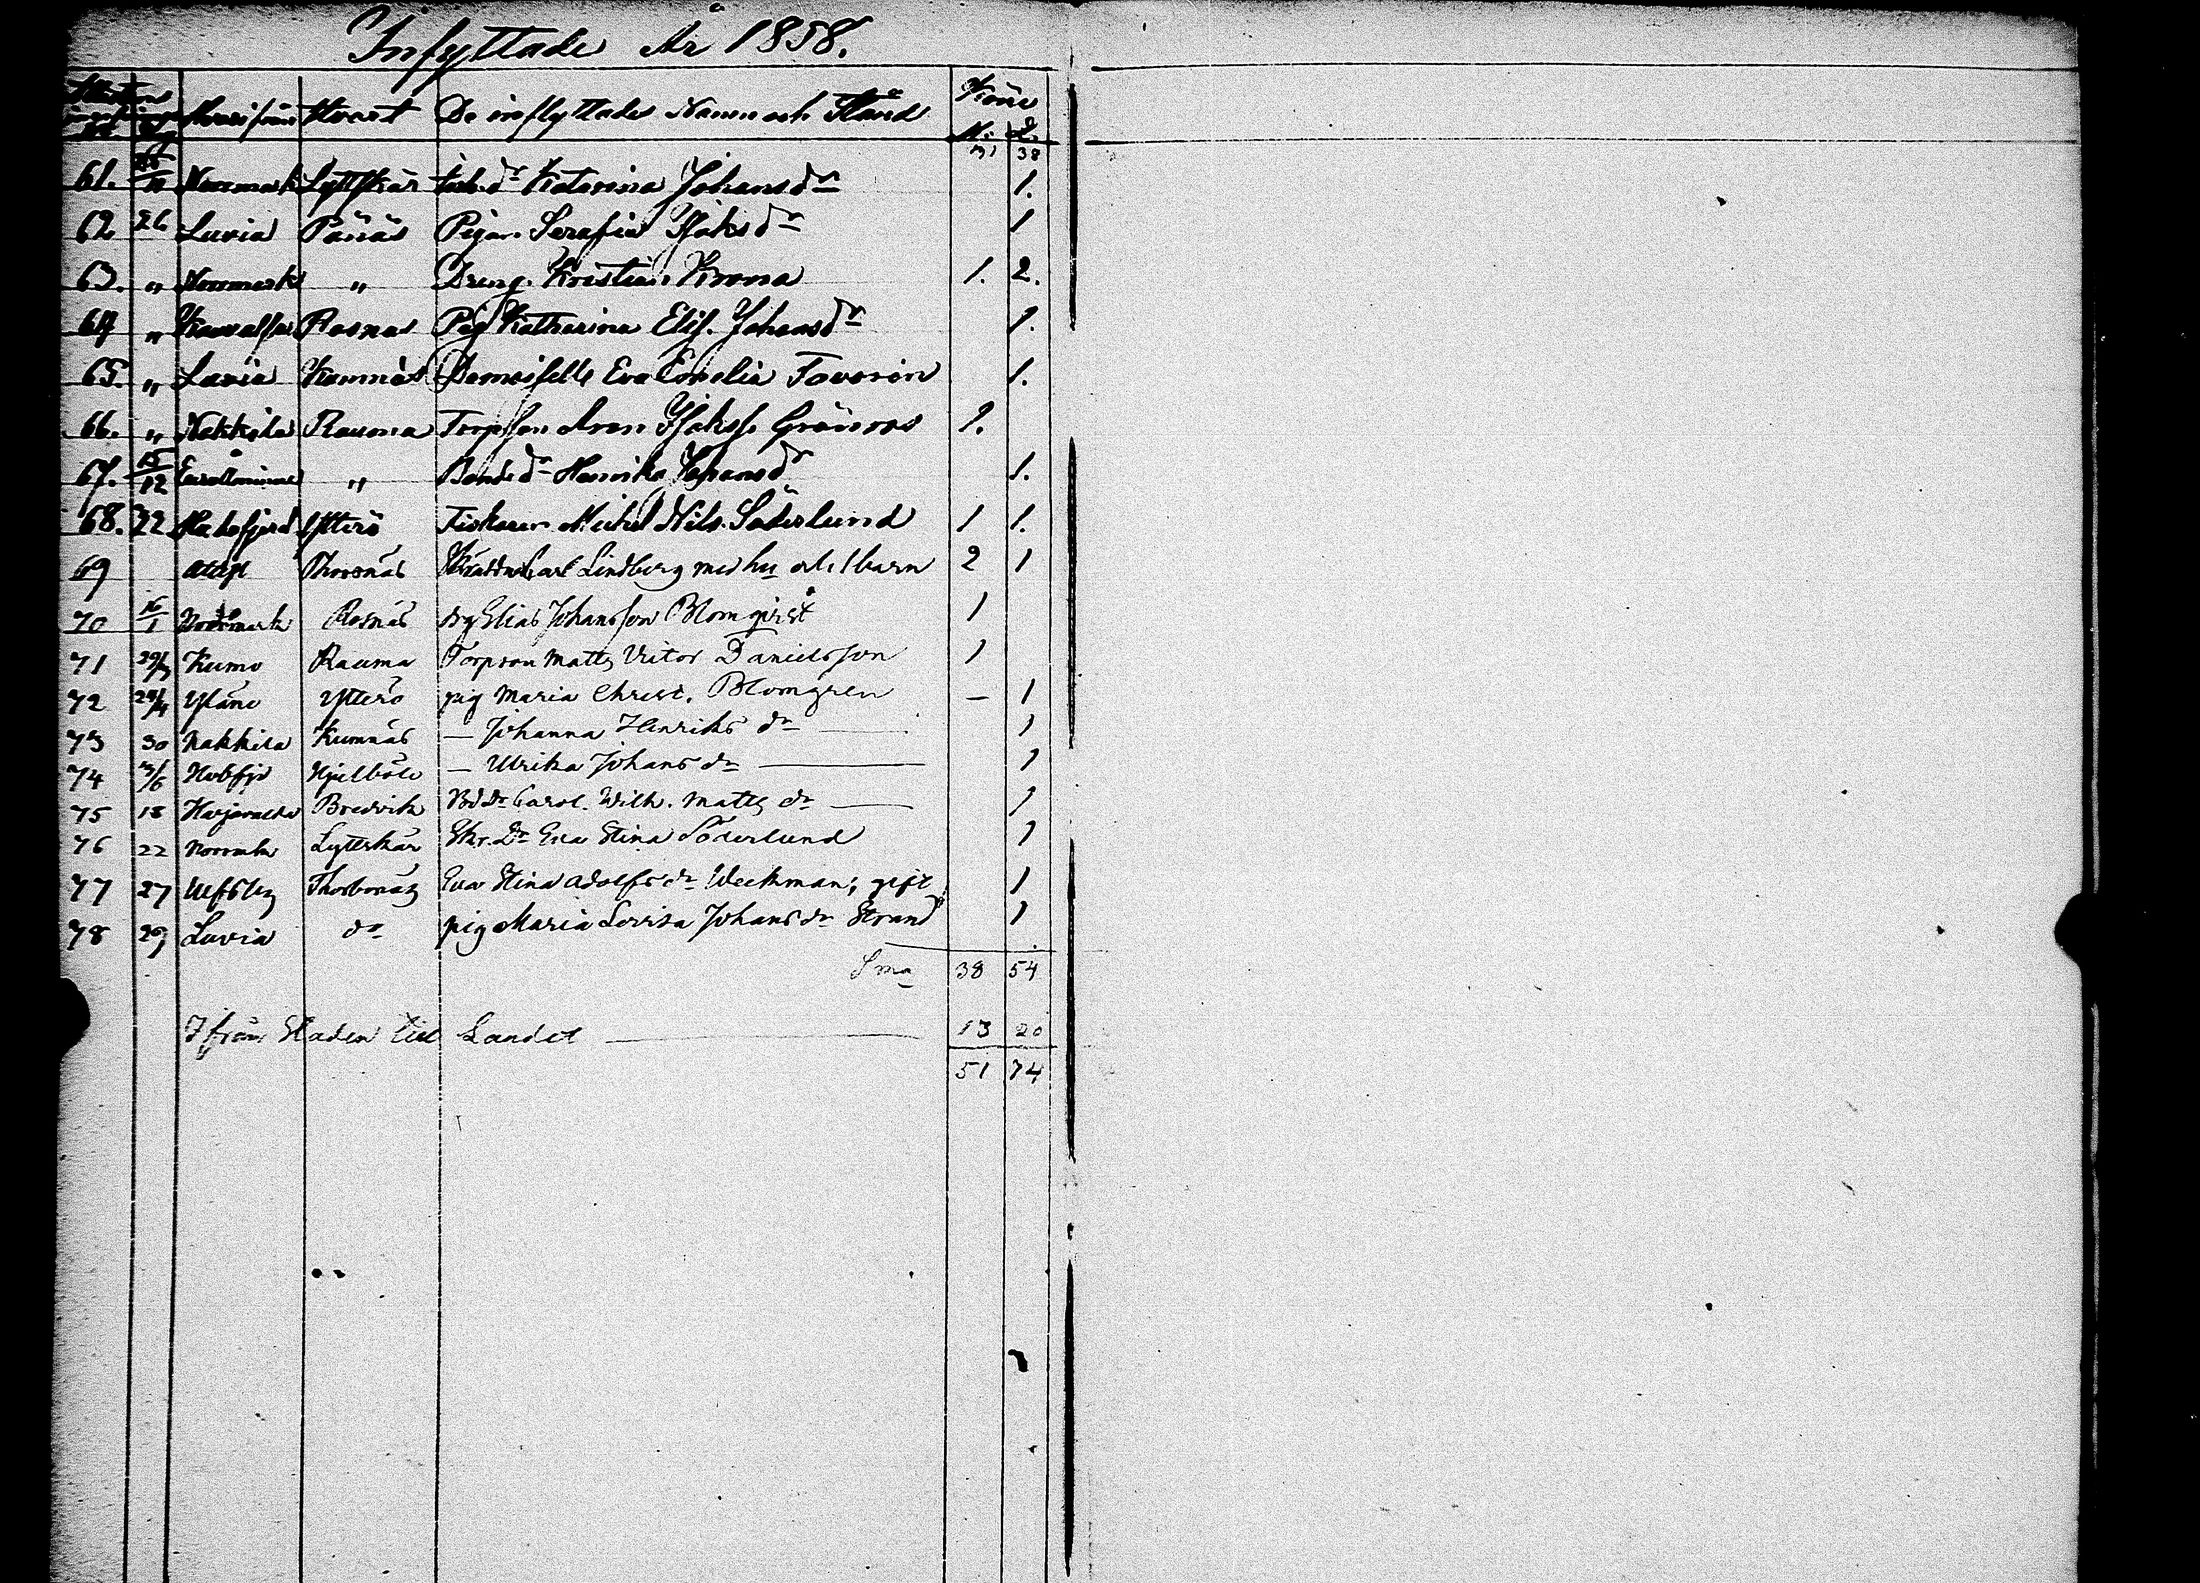 Inflyttade År 1858.
Hvarifrån Hvart De inflyttades Namn och Stånd Köne
M. Q.
31 38
61. 26/11 Norrmark Lyttskär Katarina Johansdr 1.
62. 26 Luvia Pänäs Pigan Serafia Isaksdr 1
63. " Norrmark " Dreng. Kristian Krona 1. 2.
64 " Rosnäs Pig Katharina Elis. Johansdr 1.
65. " Luvia Kumnäs Demoiselle Eva Cornelia Favorin 1.
66. " Nakkila Rauma Torpson Aron Isakss. Grönroos 1.
67. 15/12 Euraåminne " Bonde dr Henrika Johansdr 1.
68. 22 Hvitisfjerd Ytterö Fiskaren Mickel Nils. Söderlund 1 1.
69 Thorsnäs Carl Lindberg med hu och 1 barn 2 1
70 16/1 Norrmark Rosnäs drg Elias Johansson Blomqvist 1
71 29/3 Kumo Rauma Torpson Matts Victor Danielsson 1
72 24/4 Yläne Ytterö pig Maria Christ. Blomgren — 1
73 30 Nakkila Kumnäs — Johanna Henriks dr — 1
74 3/6 Hvbfjd Hjulböle — Ulrika Johans dr — 1
75 18 Harjavalta Bredvik Bd dr Carol. Wilh. Matts dr — 1
76 22 Norrmk Lyttskär Skr. Dr Eva Stina Söderlund 1
77 27 Ulfsby Thorbonäs Eva Stina Adolfs dr Weckman; gift 1
78 29 Luvia do pig Maria Lovisa Johans dr Strand 1
Sma 38 54
Ifrån Staden till Landet — 13 20
51 74